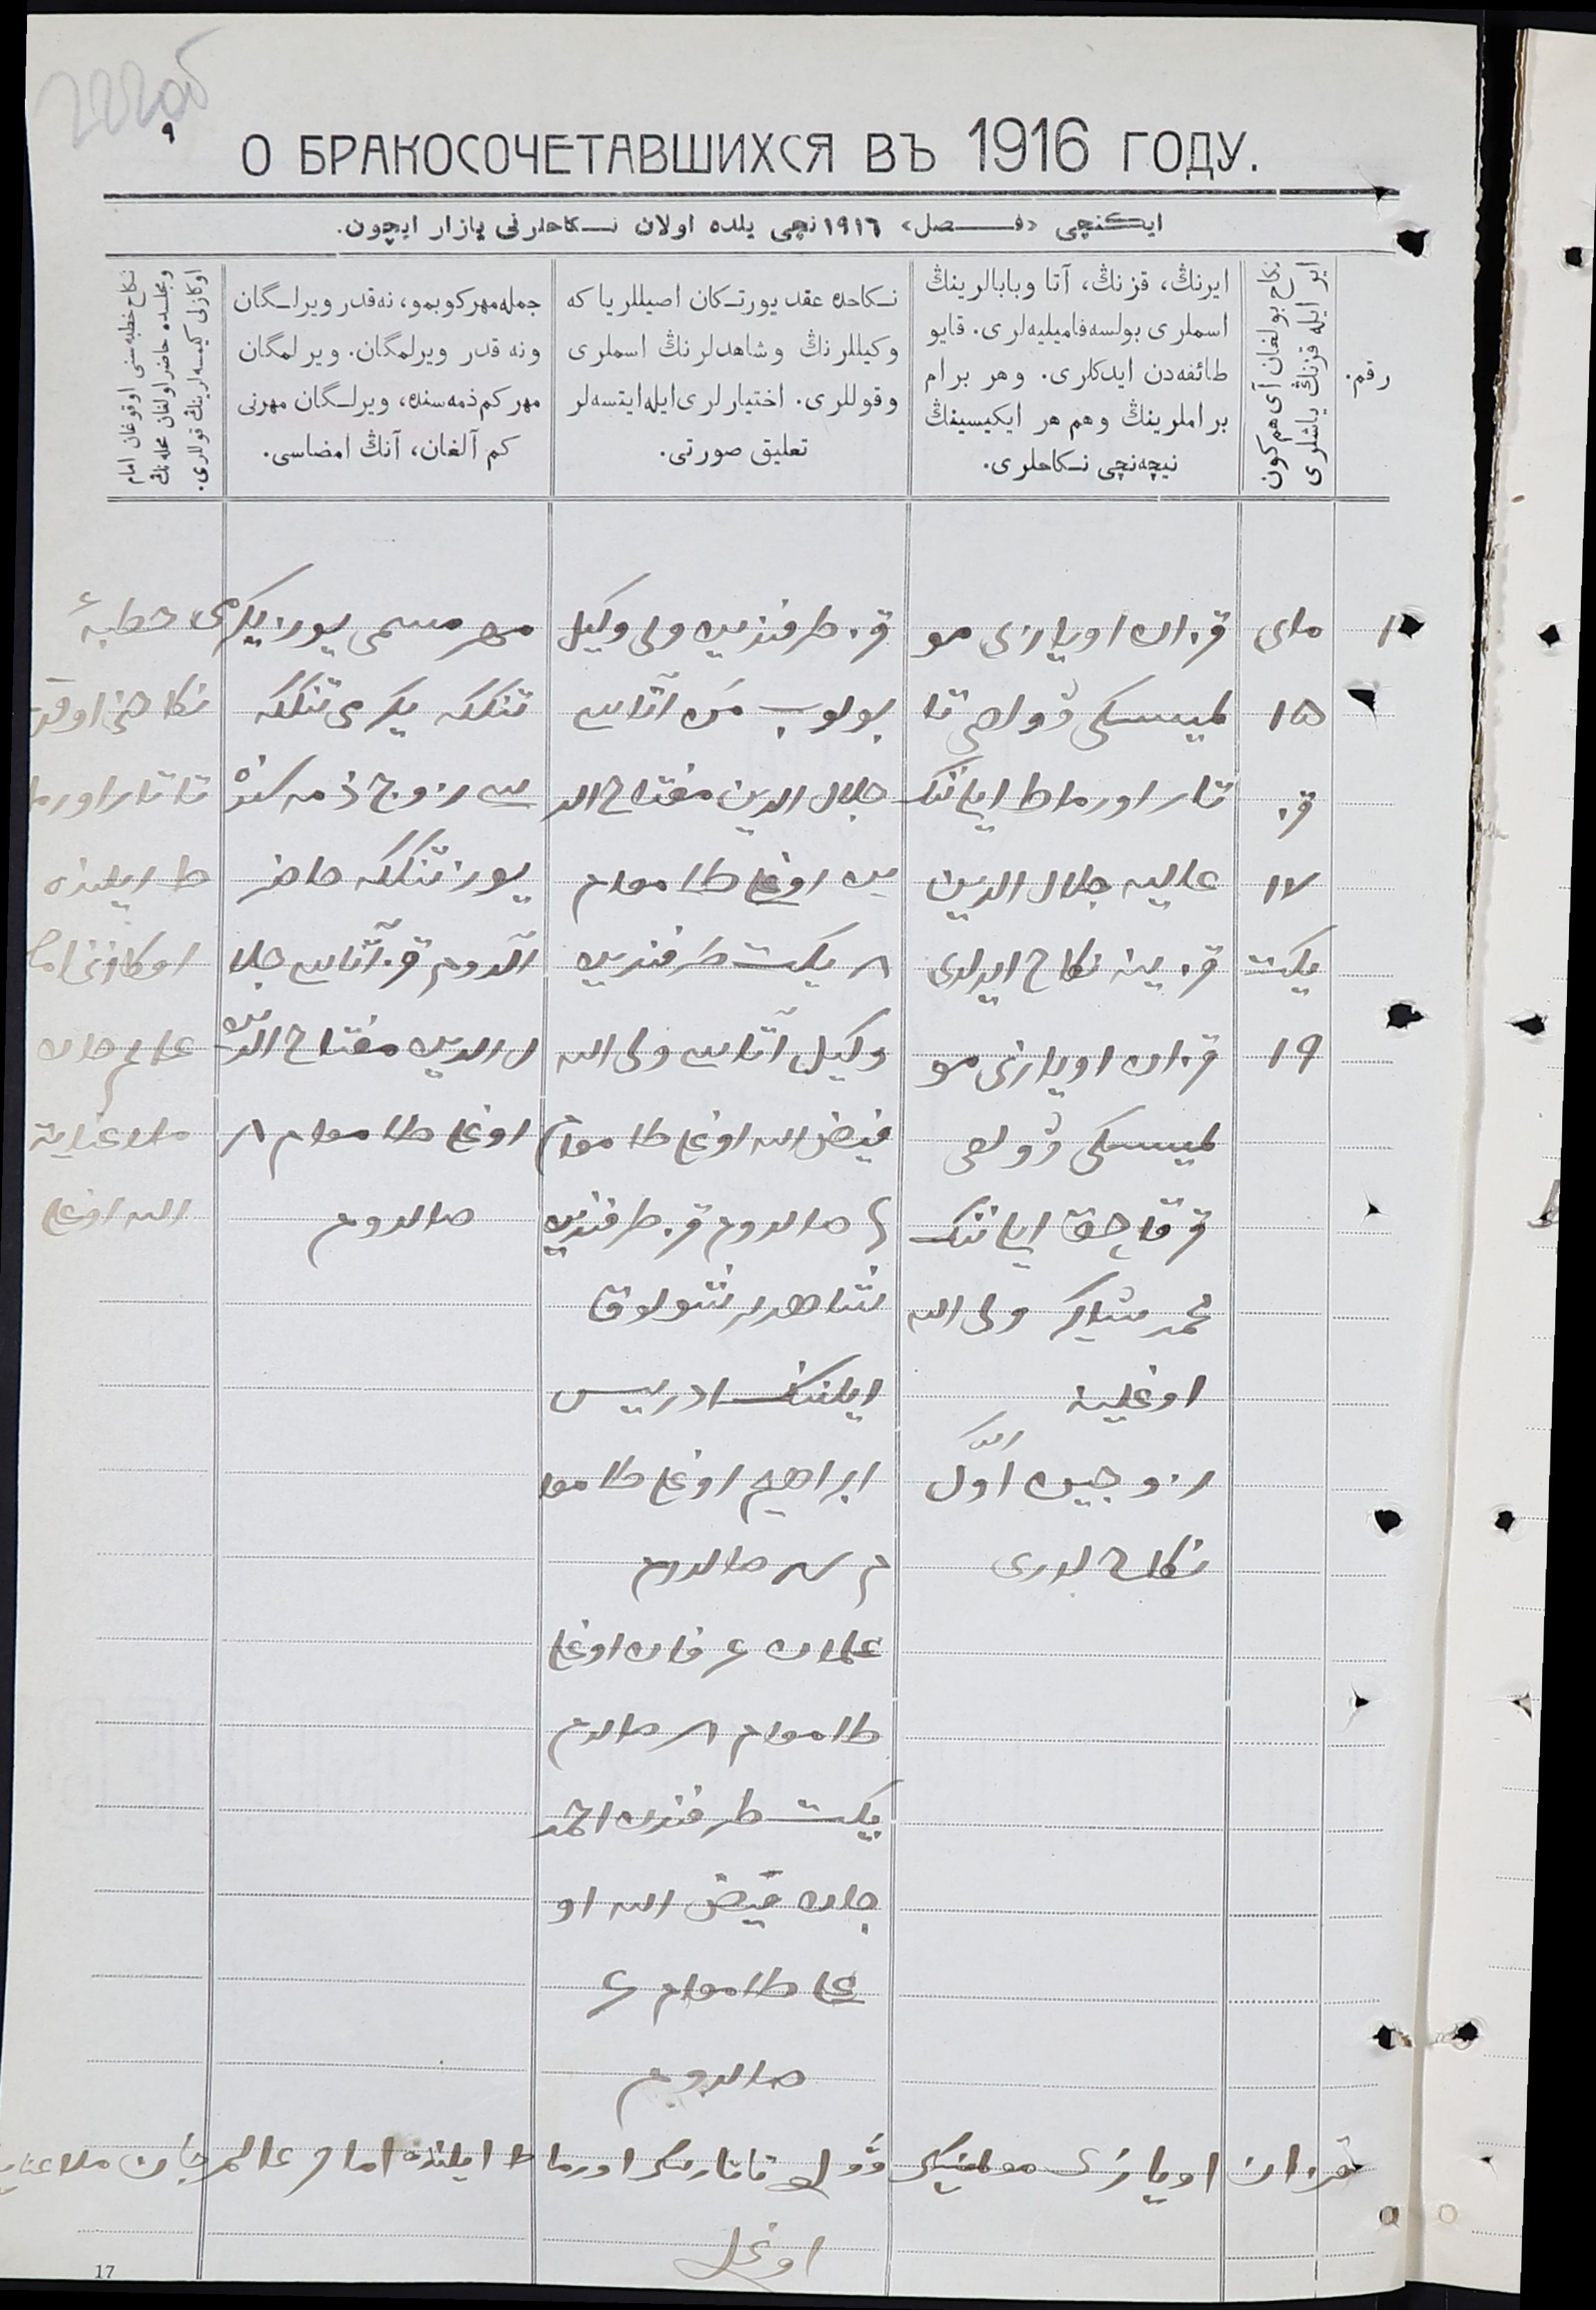 222 об
О БРАКОСОЧЕТАВШИХСЯ ВЪ 1916 ГОДУ.
ایکنچی «فصل» ۱۹۱٦ نچی یلده اولان نکاحلرنی یازار ایچون.
رقم.
نکاح بولغان آی هم کون
ایر ایله قزنڭ یاشلری
ایرنڭ، قزنڭ، آتا وبابالرینڭ
اسملری بولسه فامیلیه‌لری. قایو
طائفه‌دن ایدکلری. وهر برام
براملرینڭ وهم هر ایکیسینڭ
نیچه‌نچی نکاحلری.
نکاحده عقد یورتکان اصیللر یا که
وکیللرنڭ وشاهدلرنڭ اسملری
وقوللری. اختیارلری ایله ایتسه‌لر
تعلیق صورتی.
جمله مهر کوبمو، نه قدر ویرلگان
ونه قدر ویرلمگان. ویرلمگان
مهر کم ذمه‌سنده، ویرلگان مهرنی
کم آلغان، آنڭ امضاسی.
نکاح خطبه‌سنی اوقوغان امام
ومجلسده حاضر اولغان محله‌نڭ
اوکازنی کیمسه‌لرینڭ قوللری.
۱
مای
۱۵
قز
۱۷
یکت
۱۹
قزان اویازی مو
لمیسکی ۋولصی تا
تار اورماط ایلننک
عالیه جلال الدین
قزینه نکاح ایدلدی
قزان اویازی مو
لمیسکی ۋولصی
ایلننک
محمد شاکر ولی الله
اوغلینه
زوجین اوّل
نکاح لری
قز طرفندین ولی وکیل
بولوب آتاسی
جلال الدین مفتاح الد
ین اوغلی طاموام
یکت طرفندین
وکیل آتاسی ولی الله
فیض الله اوغلی طاموام
صالدوم قز طرفندین
شاهدلر
ایلننک ادریس
ابراهیم اوغلی طاموا
م صالدوم
اوغلی
طاموام صالدم
یکت طرفندن احمد
جان فیض الله او
غلی طاموام
صالدوم
مهر مسمی یوز یکرمی
تنککه یکرمی تنککه
سی زوج ذمه سنده
یوز تنککه حاضر
آلدوم قز آتاسی جلا
ل الدین مفتاح الدین
اوغلی طاموام
صالدوم
خطبهٔ
نکاحنی اوقو
تاتار اورما
ط ایلنده
اوکازنی امام
عالم جان
ملا عنایة
الله اوغلی
قزان اویازی مولمیسکی ۋولصی تاتارسکی اورماط ایلنده امام عالمجان ملا
اوغلی
17